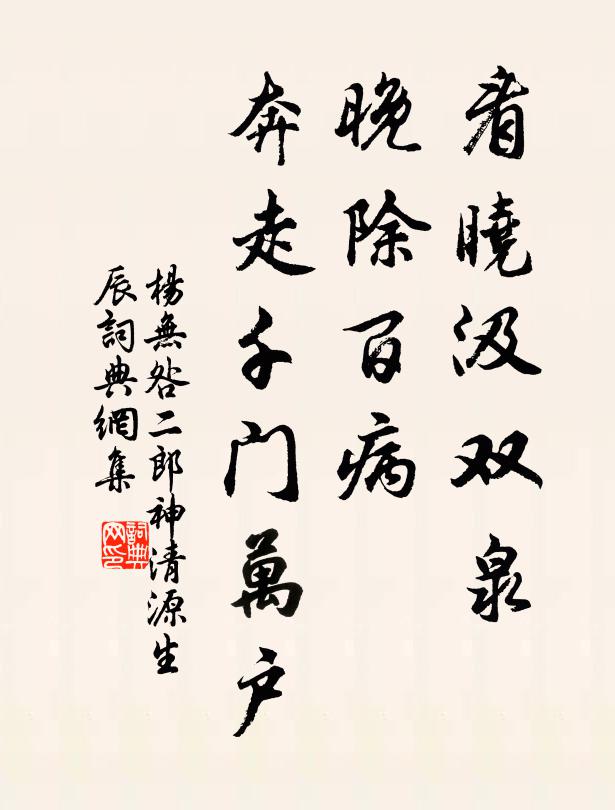 看曉汲双泉
晚除百病
奔走千门萬户
楊無咎二郎神清源生
辰詞典網集
詞典网印